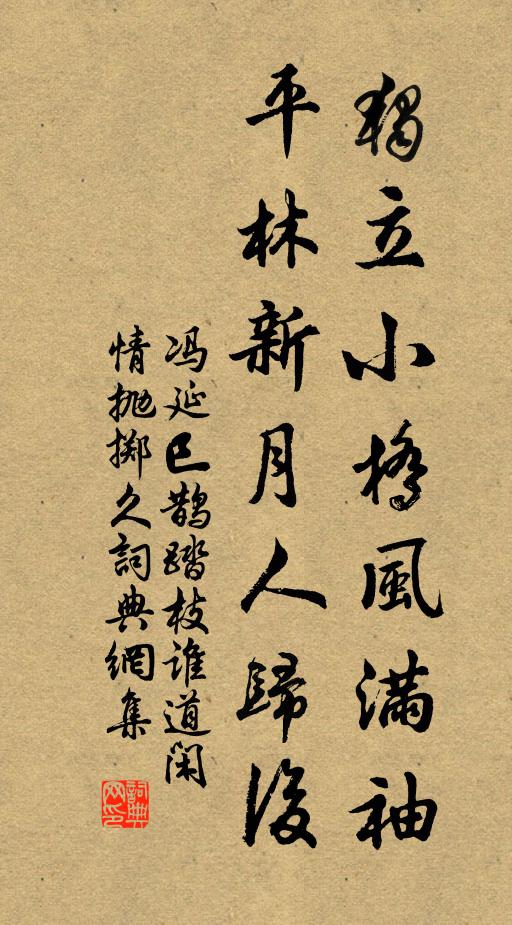 獨立小橋風滿袖
平林新月人歸後
冯延巳鹊踏枝谁道闲
情抛掷久詞典網集
詞典
网印